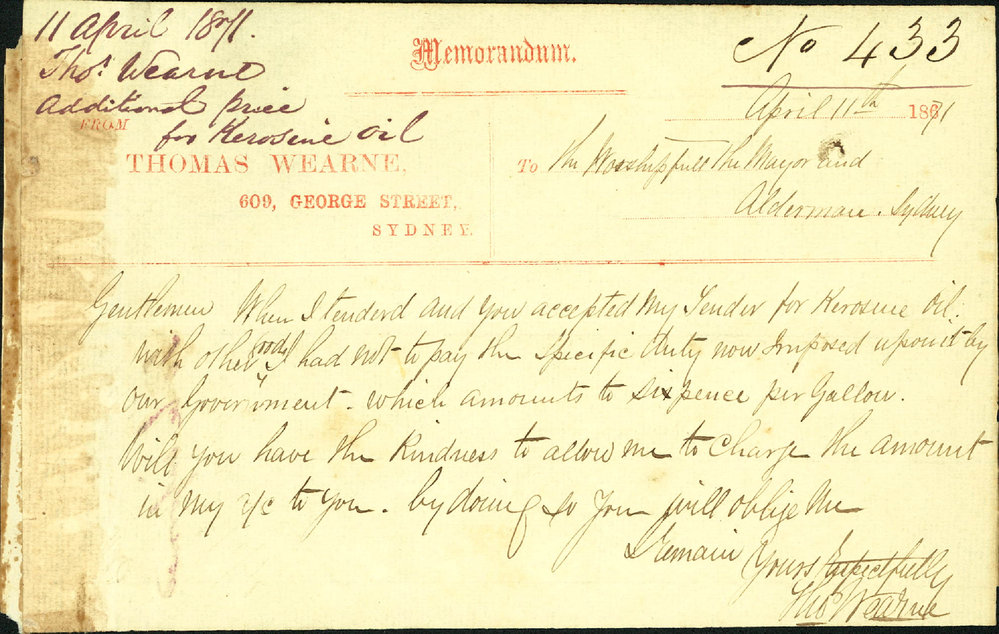 11 April 1871.
Thos. Wearne
Additional price
for Kerosine Oil
Memorandum.
No 433
April 11th 1871
FROM
THOMAS WEARNE,
609, GEORGE STREET,
SYDNEY.
To The Worshipfull The Mayor and
Alderman. Sydney
Gentlemen When I tenderd and you accepted My Tender for Kerosine Oil.
with other goods I had not to pay the Specific duty now Imposed upon it by
our Government - which amounts to sixpence per Gallon.
Will you have the Kindness to allow me to Charge the amount
in my a/c to You. by doing so You will oblige Me
I remain Yours Respectfully
Thos Wearne